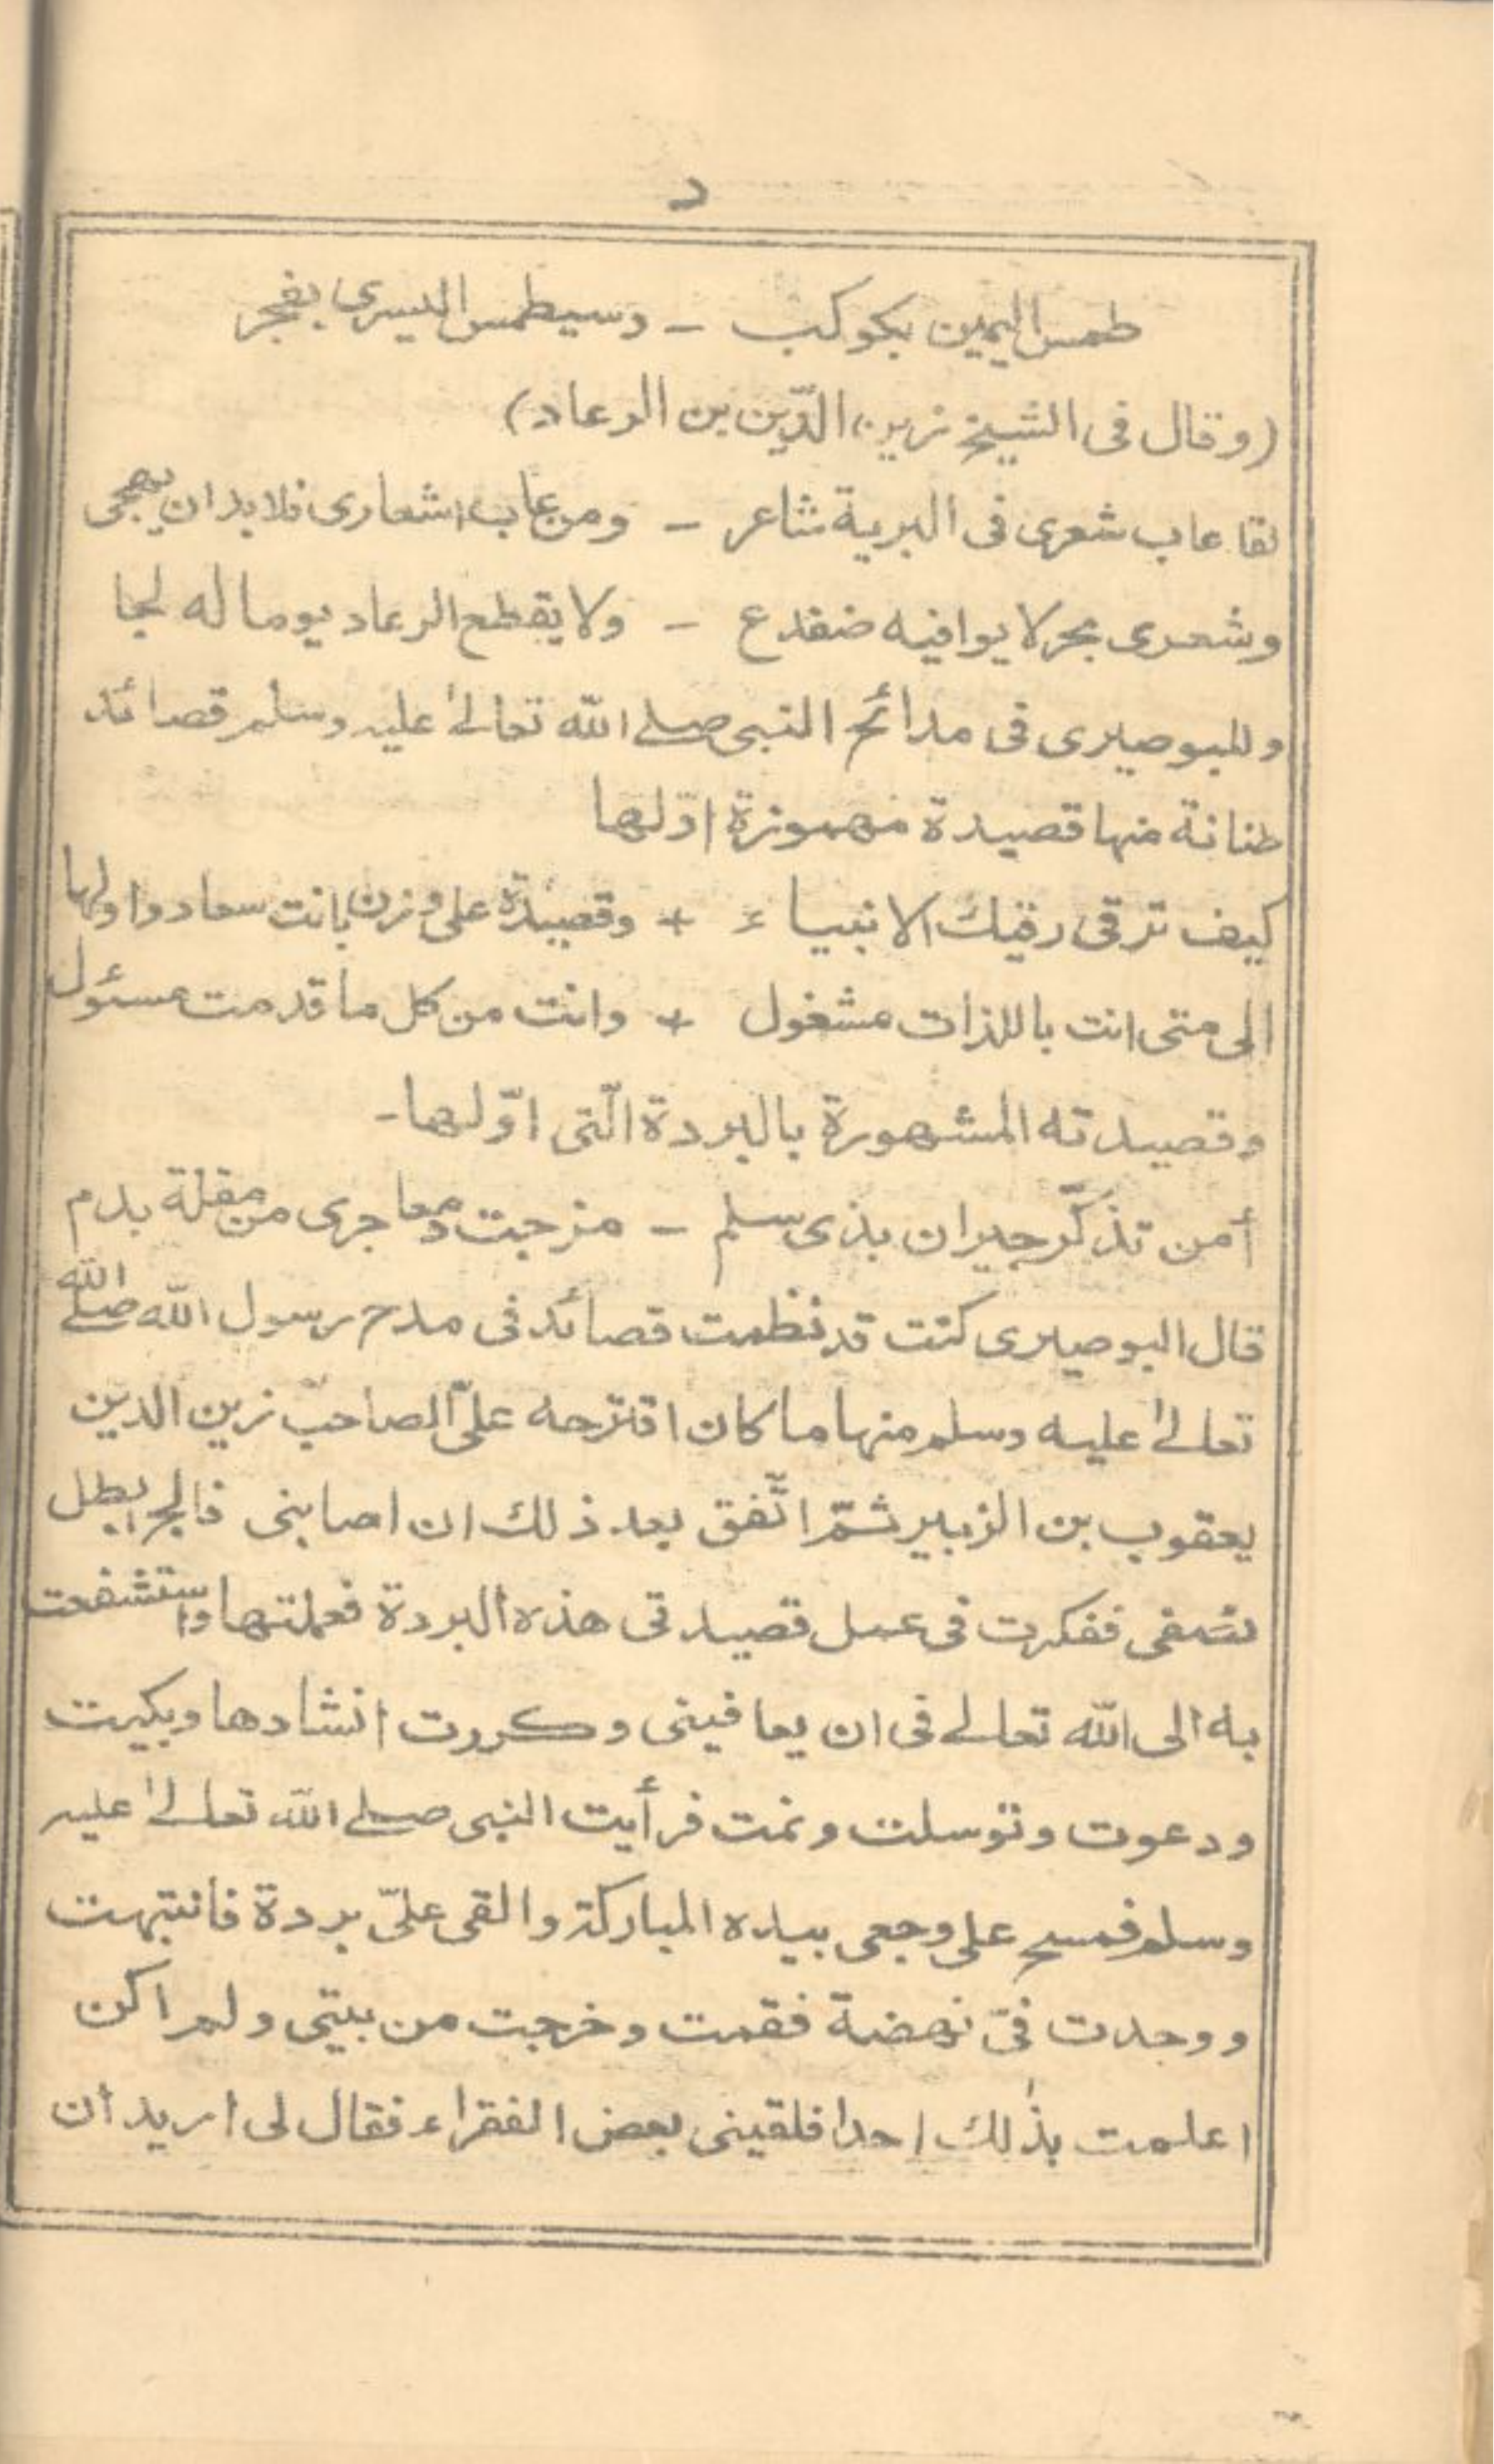 د
طمس اليمين بكوكب - وسيطمس اليسرى بفجر
(وقال فى الشيخ زين الدّين بن الرعاد)
لقد عاب شعرى فى البرية شاعر - ومن عاب اشعارى فلا بد ان يهجى
وشعرى بحر لا يوافيه ضفدع - ولا يقطع الرعاد يوما له لجا
وللبوصيرى فى مدائح النبى صلے الله تعالےٰ عليه وسلم قصائد
طنانة منها قصيدة مهموزة اوّلها
كيف ترقى رقيك الانبياء + وقصيدة على وزن بانت سعاد واولها
الى متى انت باللذات مشغول + وانت من كل ما قدمت مسئول
وقصيدته المشهورة بالبردة الّتى اوّلها-
أمن تذكّر جيران بذى سلم - مزجت دمعا جرى من مقلة بدم
قال البوصيرى كنت قد نظمت قصائد فى مدح رسول الله صلے الله
تعالےٰ عليه وسلم منها ما كان اقترحه علىّ الصاحب زين الدين
يعقوب بن الزبير ثمّ اتّفق بعد ذلك ان اصابنى فالج ابطل
نصفى ففكرت فى عمل قصيدتى هذه البردة فعملتها واستشفعت
به الى الله تعالے فى ان يعافينى وكررت انشادها وبكيت
ودعوت وتوسلت ونمت فرأيت النبى صلے الله تعالےٰ عليه
وسلم فمسح على وجعى بيده المباركة والقى علىّ بردة فانتبهت
ووجدت فىّ نهضة فقمت وخرجت من بيتى ولم اكن
اعلمت بذٰلك احدا فلقينى بعض الفقراء فقال لى اريد ان